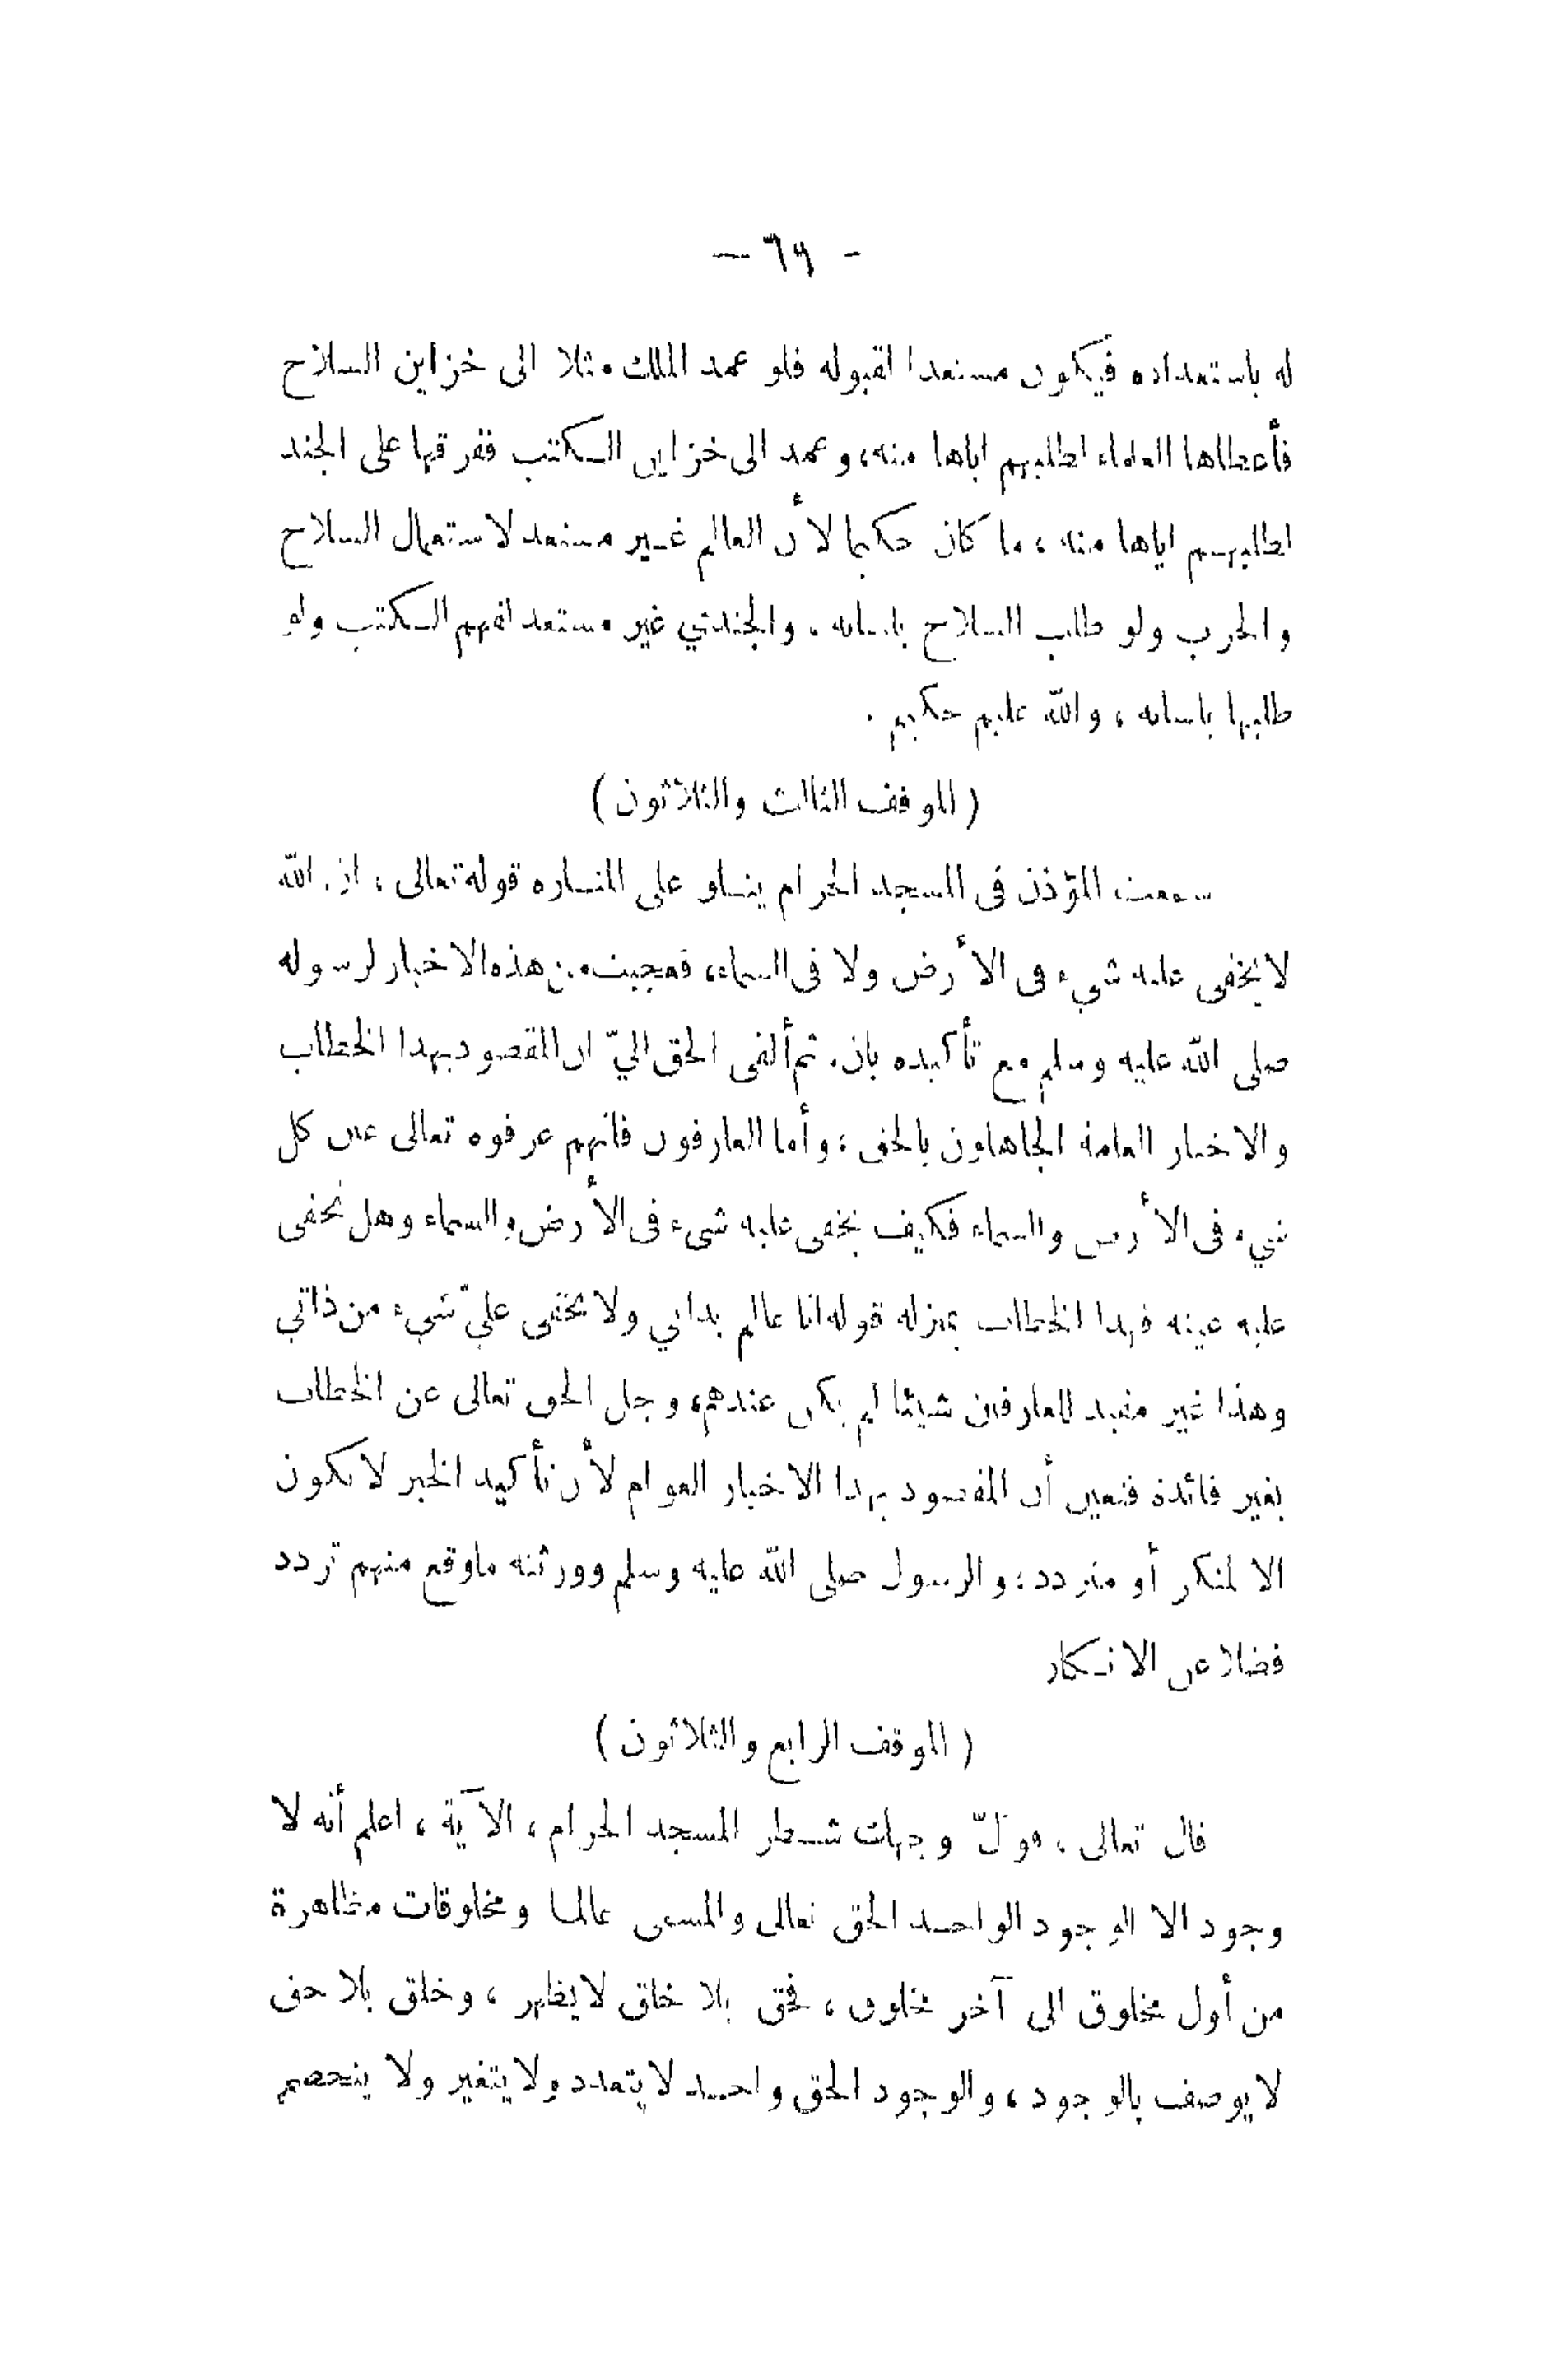 — ٦٩ —
له باستعداده فيكون مستعدا لقبوله فلو عمد الملك مثلا الى خزاين السلاح
فأعطاها العلماء لطلبهم اياها منه، وعمد الى خزاين الكتب ففرقها على الجند
لطلبهم اياها منه، ما كان حكيما لأن العالم غير مستعد لاستعمال السلاح
والحرب ولو طلب السلاح بلسانه، والجندي غير مستعد لفهم الكتب ولو
طلبها بلسانه، والله عليم حكيم.
(الموقف الثالث والثلاثون)
سمعت المؤذن فى المسجد الحرام يتلو على المناره قوله تعالى، ان الله
لا يخفى عليه شيء فى الأرض ولا فى السماء، فعجبت من هذه الاخبار لرسوله
صلى الله عليه وسلم مع تأكيده بان. ثم ألقى الحق اليّ ان المقصود بهذا الخطاب
والاخبار العامة الجاهلون بالحق، وأما العارفون فانهم عرفوه تعالى عين كل
شيء فى الأرض والسماء فكيف يخفى عليه شيء فى الأرض والسماء وهل يخفى
عليه عينه فهذا الخطاب بمنزله قوله انا عالم بذاتي ولا يخفى عليّ شيء من ذاتي
وهذا غير مفيد للعارفين شيئا لم يكن عندهم، وجل الحق تعالى عن الخطاب
بغير فائدة فتعين أن المقصود بهذا الاخبار العوام لأن تأكيد الخبر لا يكون
الا لمنكر أو متردد، والرسول صلى الله عليه وسلم وورثته ماوقع منهم تردد
فضلا عن الانكار
(الموقف الرابع والثلاثون)
قال تعالى، فولّ وجهك شطر المسجد الحرام، الآية، اعلم أنه لا
وجود الا الوجود الواحد الحق تعالى والمسمى عالما ومخلوقات مظاهرة
من أول مخلوق الى آخر مخلوق، فحق بلا خلق لا يظهر، وخلق بلا حق
لا يوصف بالوجود، والوجود الحق واحد لا يتعدد ولا يتغير ولا ينحصر